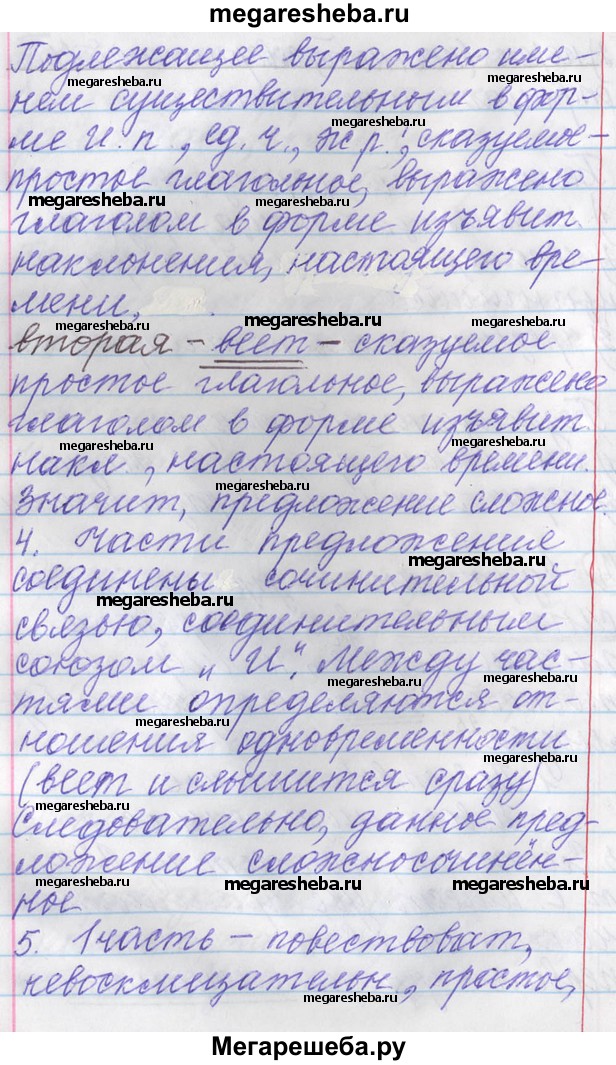 megaresheba.ru
Подлежащее выражено име-
megaresheba.ru
megaresheba.ru
нем существительным в фор-
ме И.п., ед.ч., ж.р., сказуемое -
megaresheba.ru
простое глагольное, выражено
megaresheba.ru
megaresheba.ru
глаголом в форме изъявит.
наклонения, настоящего вре-
мени,
megaresheba.ru
вторая - веет - сказуемое
простое глагольное, выражено
глаголом в форме изъявит.
megaresheba.ru
megaresheba.ru
накл., настоящего времени.
megaresheba.ru
Значит, предложение сложное.
4. Части предложения
megaresheba.ru
соединены сочинительной
megaresheba.ru
связью, соединительным
союзом "И". Между час-
megaresheba.ru
megaresheba.ru
тями определяются от-
megaresheba.ru
ношения одновременности
(веет и слышится сразу)
megaresheba.ru
Следовательно, данное пред-
megaresheba.ru
ложение сложносочинён-
megaresheba.ru
megaresheba.ru
megaresheba.ru
ное
5. 1 часть - повествоват.,
megaresheba.ru
невосклицательн., простое,
megaresheba.ru
Мегарешеба.ру